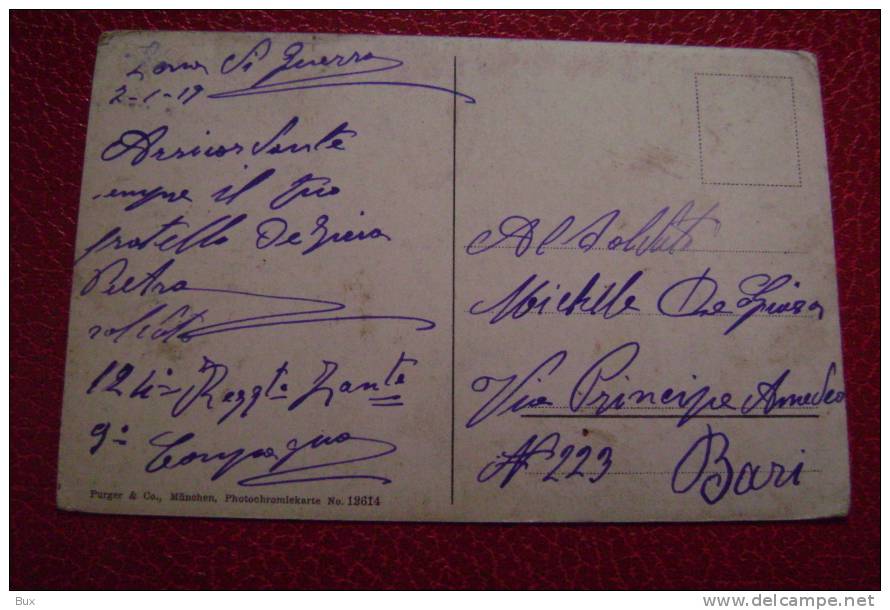 Zona di Guerra
2-1-19
Arricordante
sempre il tuo
fratello De Giosa
Pietro
soldato
124º Reggto Fante
9ª Compagnia
Purger & Co., München, Photochromiekarte No. 12614
Al Soldato
Michele De Giosa
Via Principe Amedeo
Nº 223 Bari
Bux
www.delcampe.net